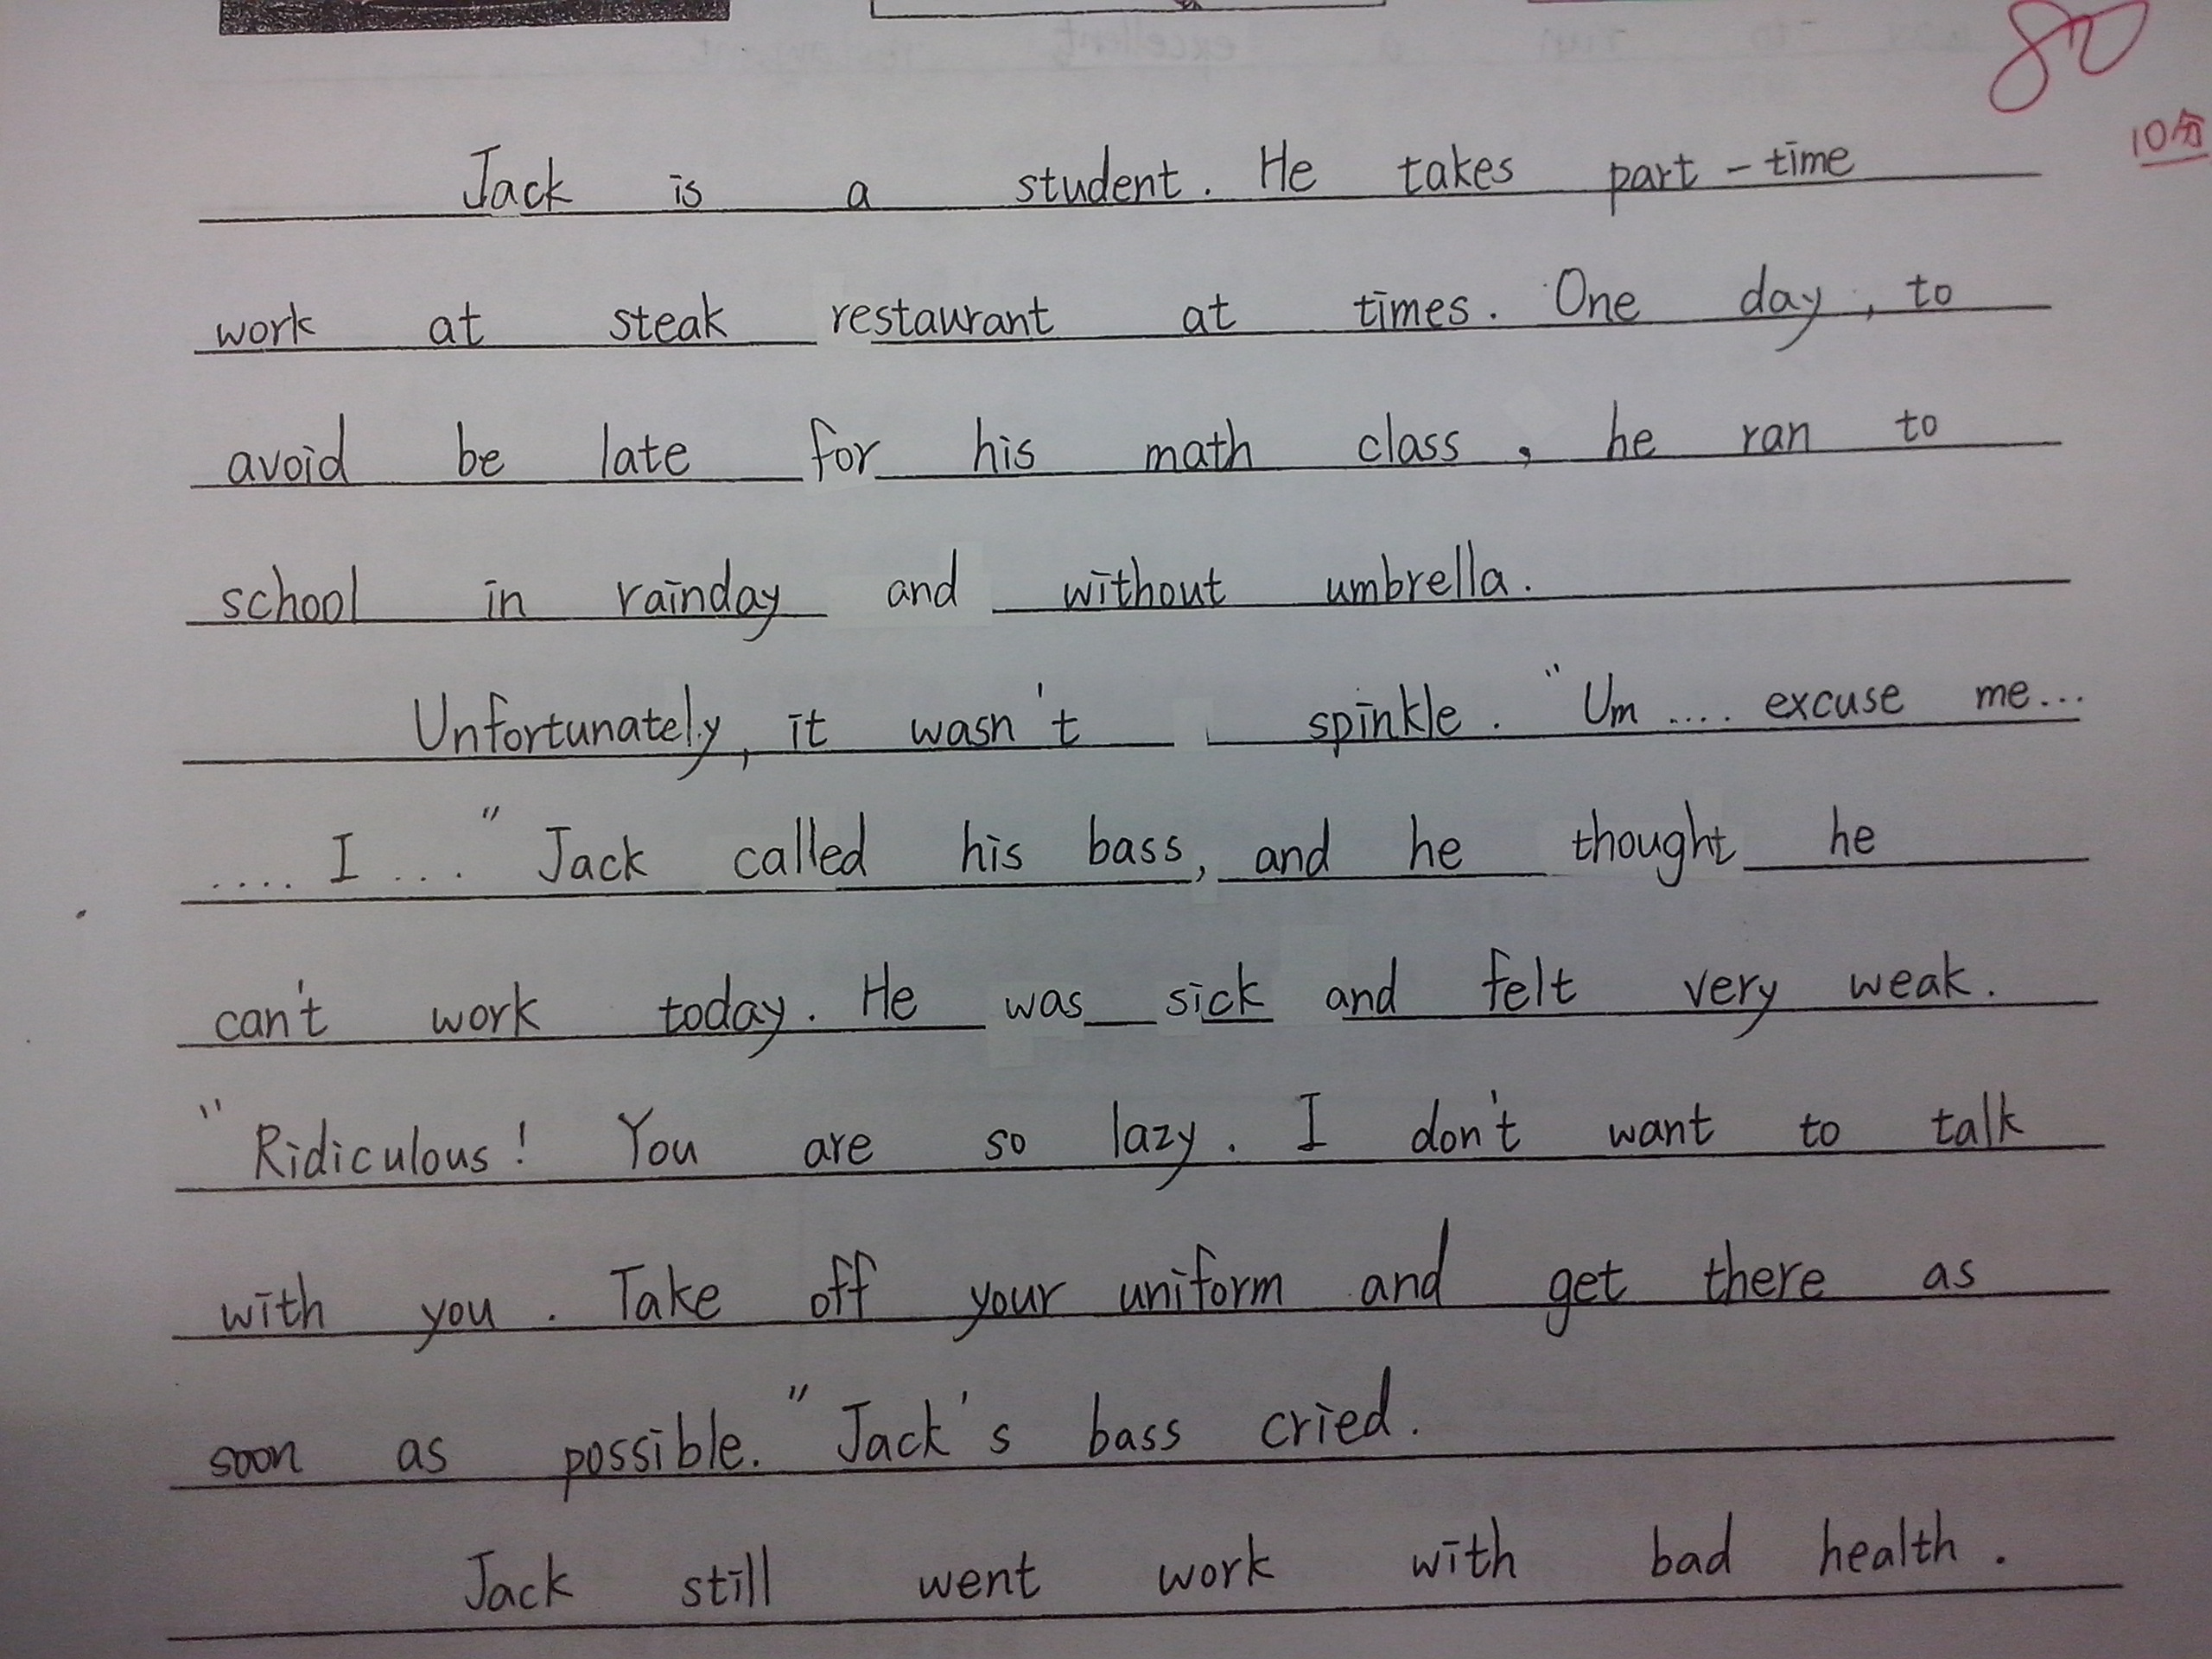 80
10分
Jack is a student. He takes part-time
work at steak restaurant at times. One day, to
avoid be late for his math class, he ran to
school in rainday and without umbrella.
Unfortunately, it wasn't spinkle. "Um .... excuse me...
.... I ..." Jack called his bass, and he thought he
can't work today. He was sick and felt very weak.
"Ridiculous! You are so lazy. I don't want to talk
with you. Take off your uniform and get there as
soon as possible." Jack's bass cried.
Jack still went work with bad health.